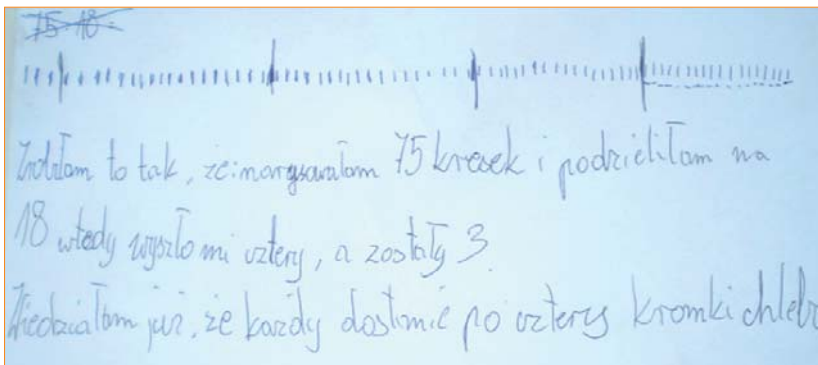 75 18
Zrobiłam to tak, że narysowałam 75 kresek i podzieliłam na
18 wtedy wyszło mi cztery, a zostały 3.
Wiedziałam już, że każdy dostanie po cztery kromki chleba